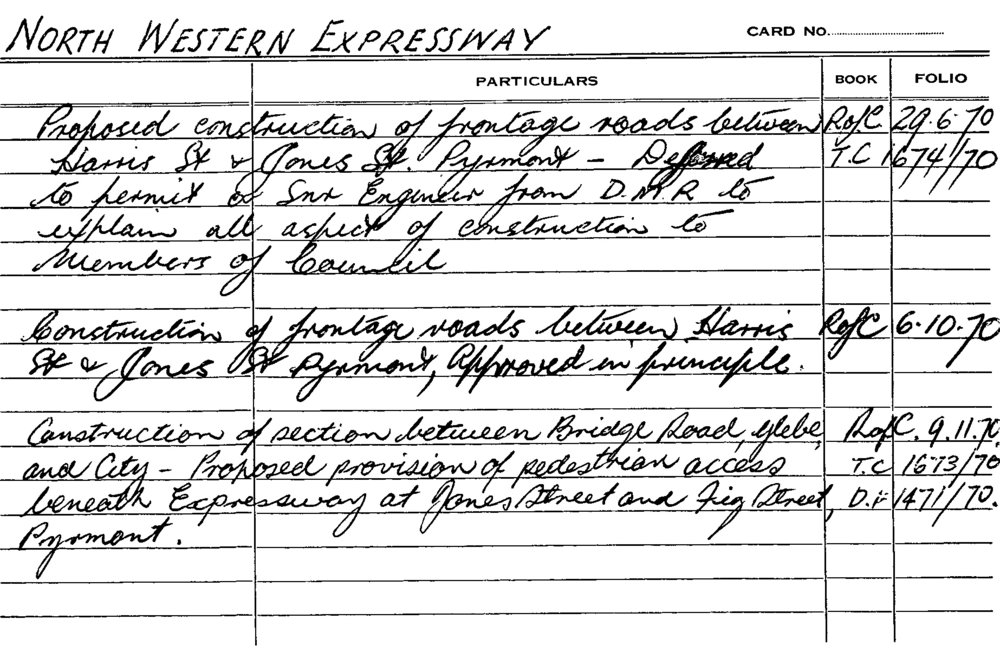 NORTH WESTERN EXPRESSWAY CARD No.
PARTICULARS BOOK FOLIO
Proposed construction of frontage roads between RofC 29.6.70
Harris St & Jones St. Pyrmont – Deferred T.C 1674/70
to permit a Snr Engineer from D.M.R to
explain all aspect of construction to
Members of Council
Construction of frontage roads between Harris RofC 6.10.70
St & Jones St Pyrmont, Approved in principle.
Construction of section between Bridge Road, Glebe, RofC. 9.11.70.
and City – Proposed provision of pedestrian access T.C 1673/70
beneath Expressway at Jones Street and Fig Street, 1471/70.
Pyrmont.